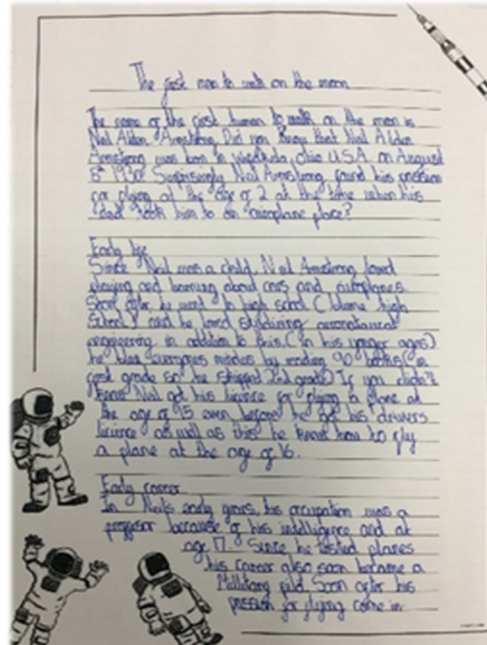 The first man to walk on the moon
The name of the first human to walk on the moon is
Neil Alden Armstrong. Did you know that Neil Alden
Armstrong was born in Ohio U.S.A. on August
5th 1930. Surprisingly Neil Armstrong found his passion
for flying at the age of 2 at the time when his
dad took him to an airoplane place?
Early life
Since Neil was a child, Neil Armstrong loved
playing and learning about cars and
Soon after, he went to high scool ( high
School) and he loved aeronautical
engineering in addition to this (in his younger ages)
he blew everyones minds by reading 90 books (in
first grade so he skipped 2nd grade) If you didn't
know Neil got his licence for flying a plane at
the age of 15 even before he got his drivers
licence as well as this he knew how to fly
a plane at the age of 16.
Early career
In Neil's early years, his occupation was a
proffesor because of his intelligence and at
age 17. Since he tested planes
his career also soon became a
pilot. Soon after his
passion for flying came in